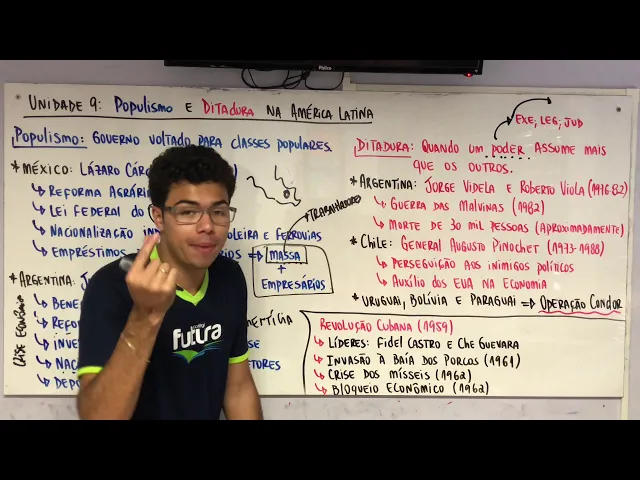 UNIDADE 9: POPULISMO E DITADURA NA AMÉRICA LATINA
POPULISMO: GOVERNO VOLTADO PARA CLASSES POPULARES.
* MÉXICO: LÁZARO
REFORMA AGRÁRI
LEI FEDERAL DO
NACIONALIZAÇÃO OLEIRA E FERROVIAS
EMPRÉSTIMOS ÁRIOS => MASSA
+
EMPRESÁRIOS
TRABALHADORES
* ARGENTINA:
BENE
REFO
INVE
NAC
DEP
CRISE ECONÔMICA
futura
EXE, LEG, JUD
DITADURA: QUANDO UM PODER ASSUME MAIS
QUE OS OUTROS.
* ARGENTINA: JORGE VIDELA E ROBERTO VIOLA (1976-82)
GUERRA DAS MALVINAS (1982)
MORTE DE 30 MIL PESSOAS (APROXIMADAMENTE)
* CHILE: GENERAL AUGUSTO PINOCHET (1973-1988)
PERSEGUIÇÃO AOS INIMIGOS POLÍTICOS
AUXÍLIO DOS EUA NA ECONOMIA
* URUGUAI, BOLÍVIA E PARAGUAI => OPERAÇÃO CONDOR
REVOLUÇÃO CUBANA (1959)
LÍDERES: FIDEL CASTRO E CHE GUEVARA
INVASÃO À BAÍA DOS PORCOS (1961)
CRISE DOS MÍSSEIS (1962)
BLOQUEIO ECONÔMICO (1962)